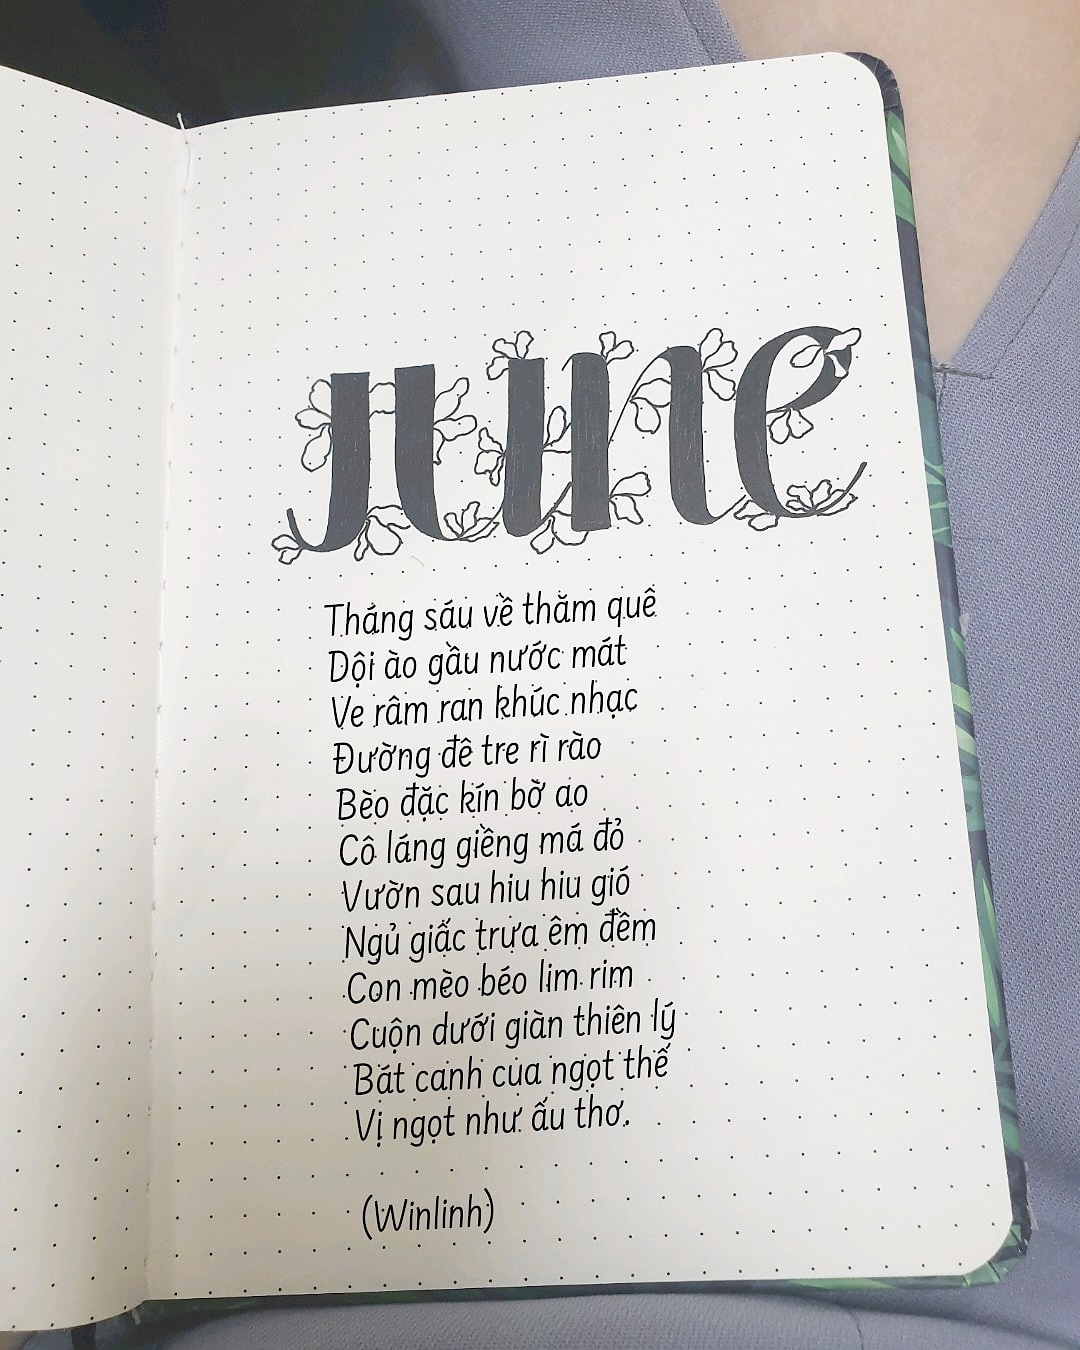 JUNE
Tháng sáu về thăm quê
Dội ào gầu nước mát
Ve râm ran khúc nhạc
Đường đê tre rì rào
Bèo đặc kín bờ ao
Cô láng giềng má đỏ
Vườn sau hiu hiu gió
Ngủ giấc trưa êm đềm
Con mèo béo lim rim
Cuộn dưới giàn thiên lý
Bát canh cua ngọt thế
Vị ngọt như ấu thơ.
(Winlinh)